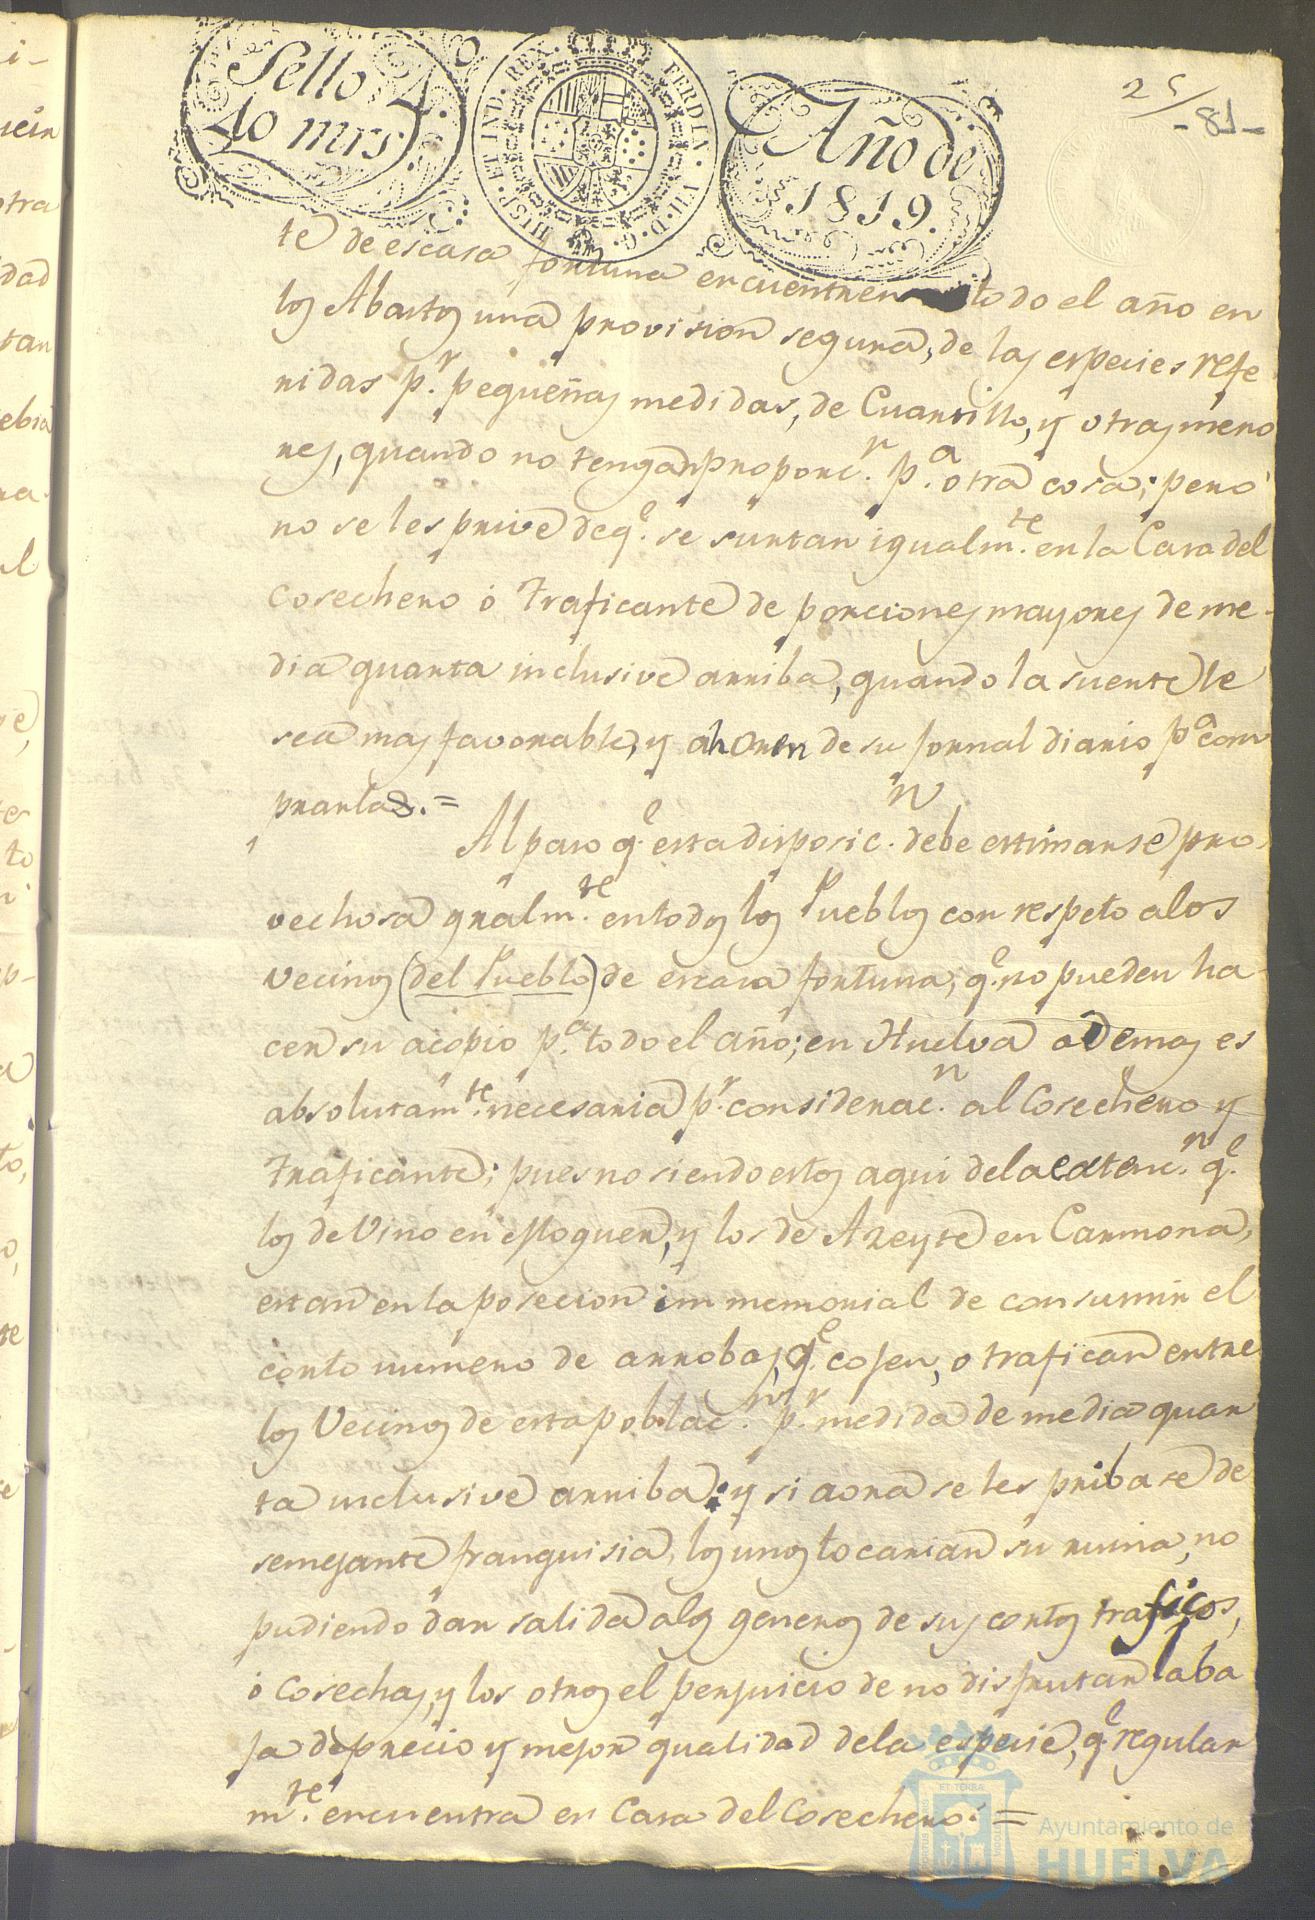 Sello 4.
40 mrs
HISP. ET IND. REX. FERDIN. VII. D. G.
Año de
1819.
25/
-81-
te de escasa fortuna encuentren todo el año en
los Abastos una provision segura, de las especies refe
ridas p.r pequeñas medidas, de Cuartillo, y otras meno
res, quando no tengan proporc.n p.a otra cosa; pero
no se les prive de q.e se surtan igualm.te en la Casa del
Cosechero ó Traficante de porciones mayores de me-
dia quarta inclusive arriba, quando la suerte le
sea mas favorable, y ahorren de su jornal diario p.a com
prarlas.=
Al paso q.e esta disposic.n debe estimarse pro
vechosa gralm.te en todos los Pueblos con respeto a los
vecinos (del Pueblo) de escasa fortuna, q.e no pueden ha-
cer su acopio p.a todo el año; en Huelva ademas es
absolutam.te necesaria p.r considerac.n al Cosechero y
Traficante; pues no siendo estos aqui de la extenc.n q.e
los de Vino en Moguer, y los de Azeyte en Carmona,
estan en la posecion immemorial de consumir el
corto numero de arrobas, q.e cojen, o trafican entre
los Vecinos de esta poblac.n p.r medida de media quar
ta inclusive arriba: y si aora se les pribase de
semejante franquisia, los unos tocarian su ruina, no
pudiendo dar salida a los generos de sus cortos traficos,
ó Cosechas, y los otros el perjuicio de no disfrutar la ba
ja de precio y mejor qualidad de la especie, q.e regular
m.te encuentra en Casa del Cosechero.=
Ayuntamiento de
HUELVA